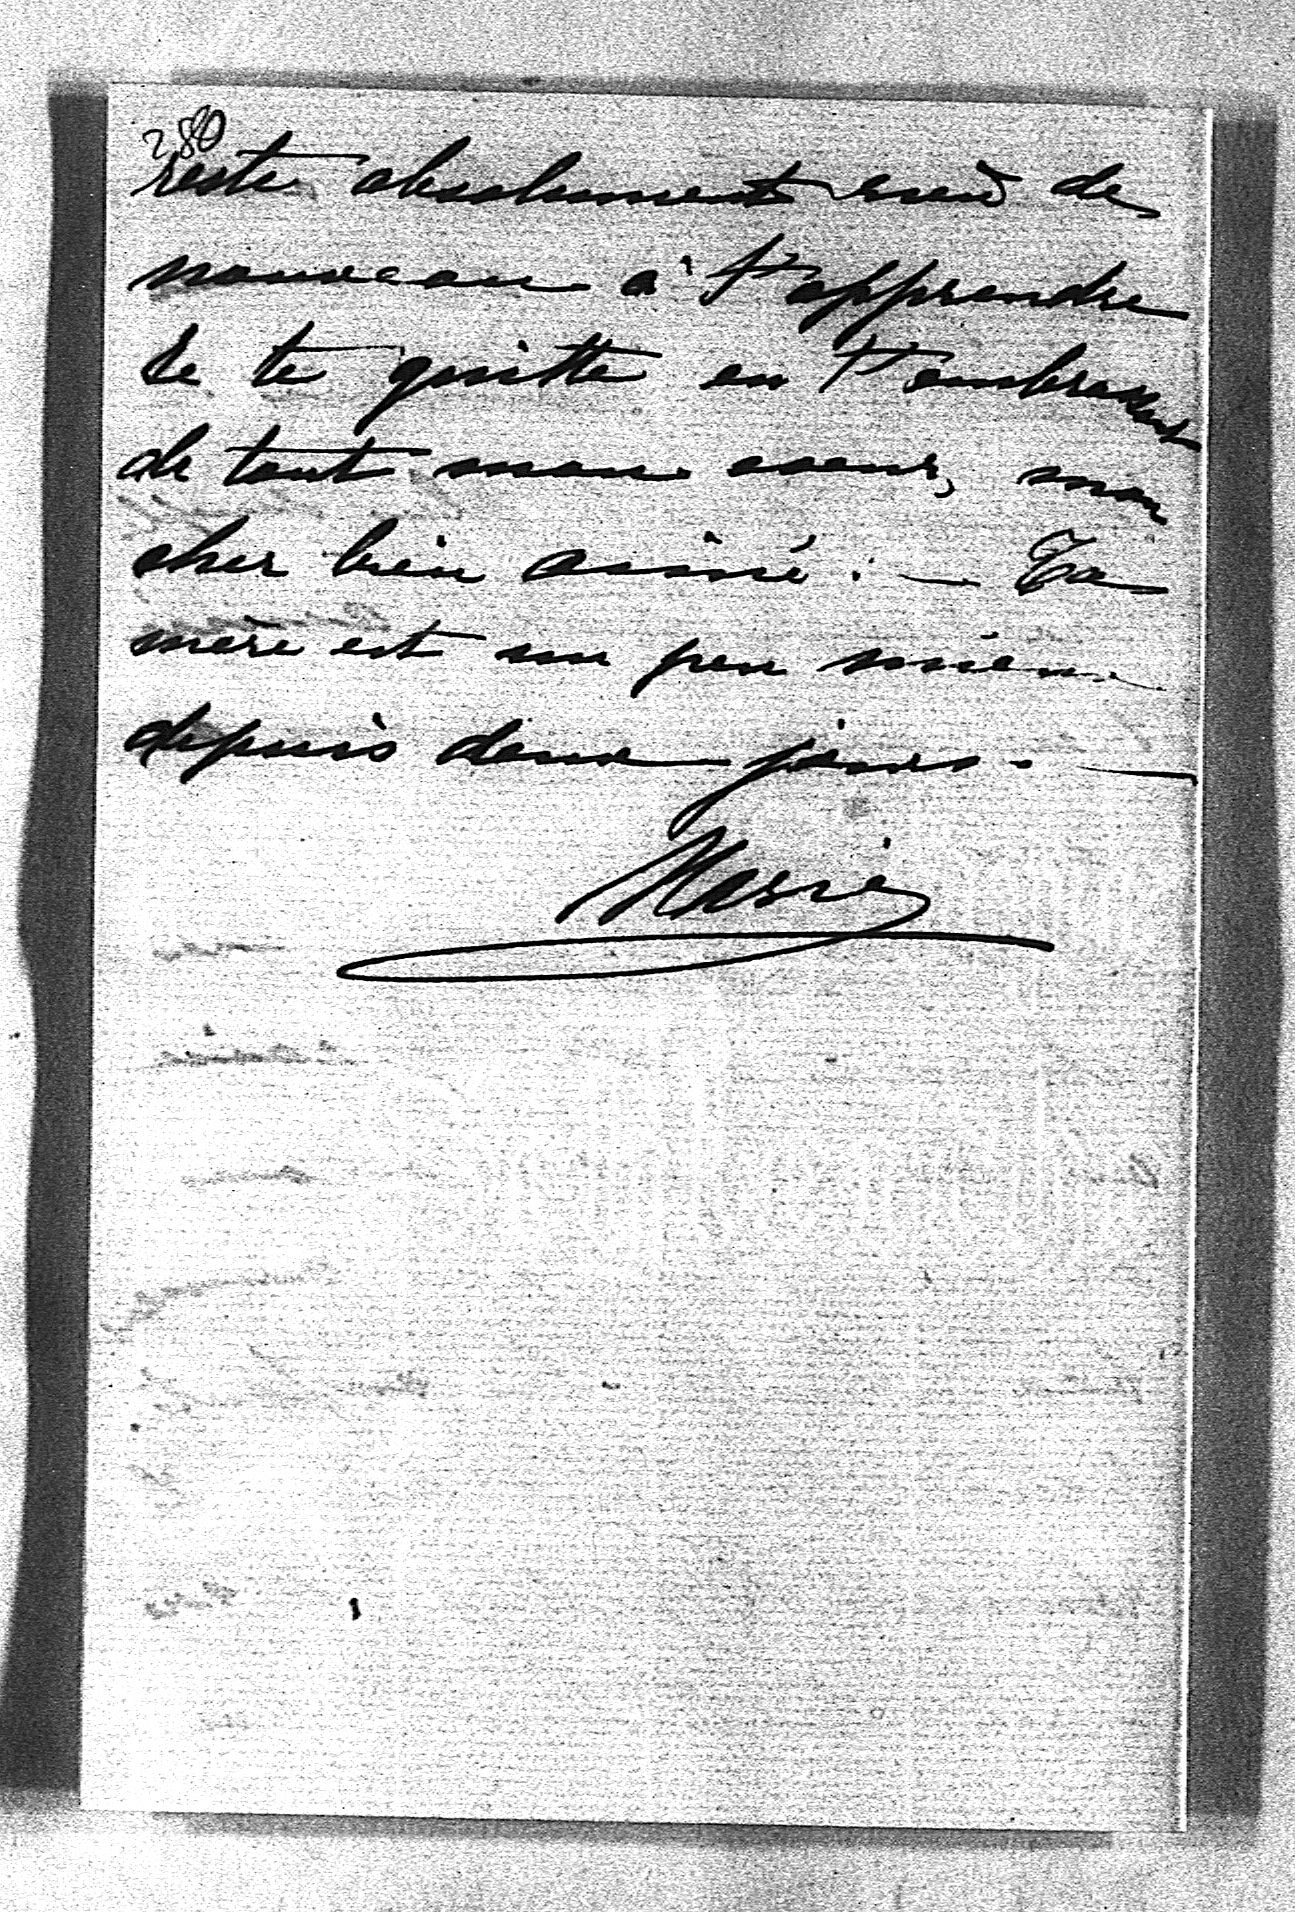 280
reste absolument rien de
nouveau à t'apprendre
Je te quitte en t'embrassant
de tout mon coeur, mon
cher bien aimé. — Ta
mère est un peu mieux
depuis deux jours. —
Marie